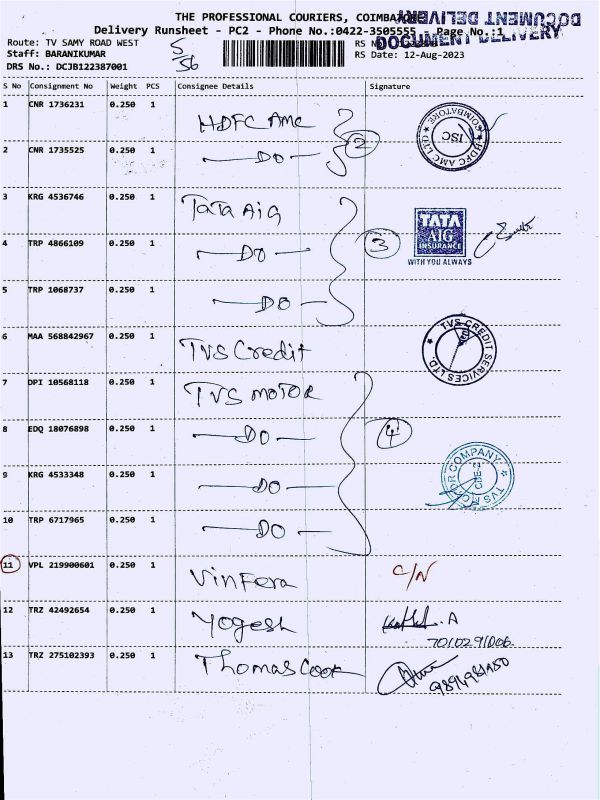 THE PROFESSIONAL COURIERS, COIMBATORE
Delivery Runsheet - PC2 - Phone No.:0422-3505555 Page No.:1
DOCUMENT DELIVERY
DOCUMENT DELIVERY
Route: TV SAMY ROAD WEST
5/56
RS
Staff: BARANIKUMAR
RS Date: 12-Aug-2023
DRS No.: DCJB122387001
S No Consignment No Weight PCS Consignee Details Signature
1 CNR 1736231 0.250 1 HDFC AMC
HDFC AMC LTD COIMBATORE ISC
2 CNR 1735525 0.250 1 — DO — 2
3 KRG 4536746 0.250 1 Tata Aig
TATA
AIG
INSURANCE
WITH YOU ALWAYS
4 TRP 4866109 0.250 1 — DO — 3
5 TRP 1068737 0.250 1 — DO —
6 MAA 568842967 0.250 1 TVS Credit
TVS CREDIT SERVICES LTD.
7 DPI 10568118 0.250 1 TVS MOTOR
8 EDQ 18076898 0.250 1 — DO — 4
9 KRG 4533348 0.250 1 — DO —
TVS MOTOR COMPANY CBE-2
10 TRP 6717965 0.250 1 — DO —
11 VPL 219900601 0.250 1 Vinfera C/N
12 TRZ 42492654 0.250 1 Yogesh
7010291006
13 TRZ 275102393 0.250 1 Thomas Cook